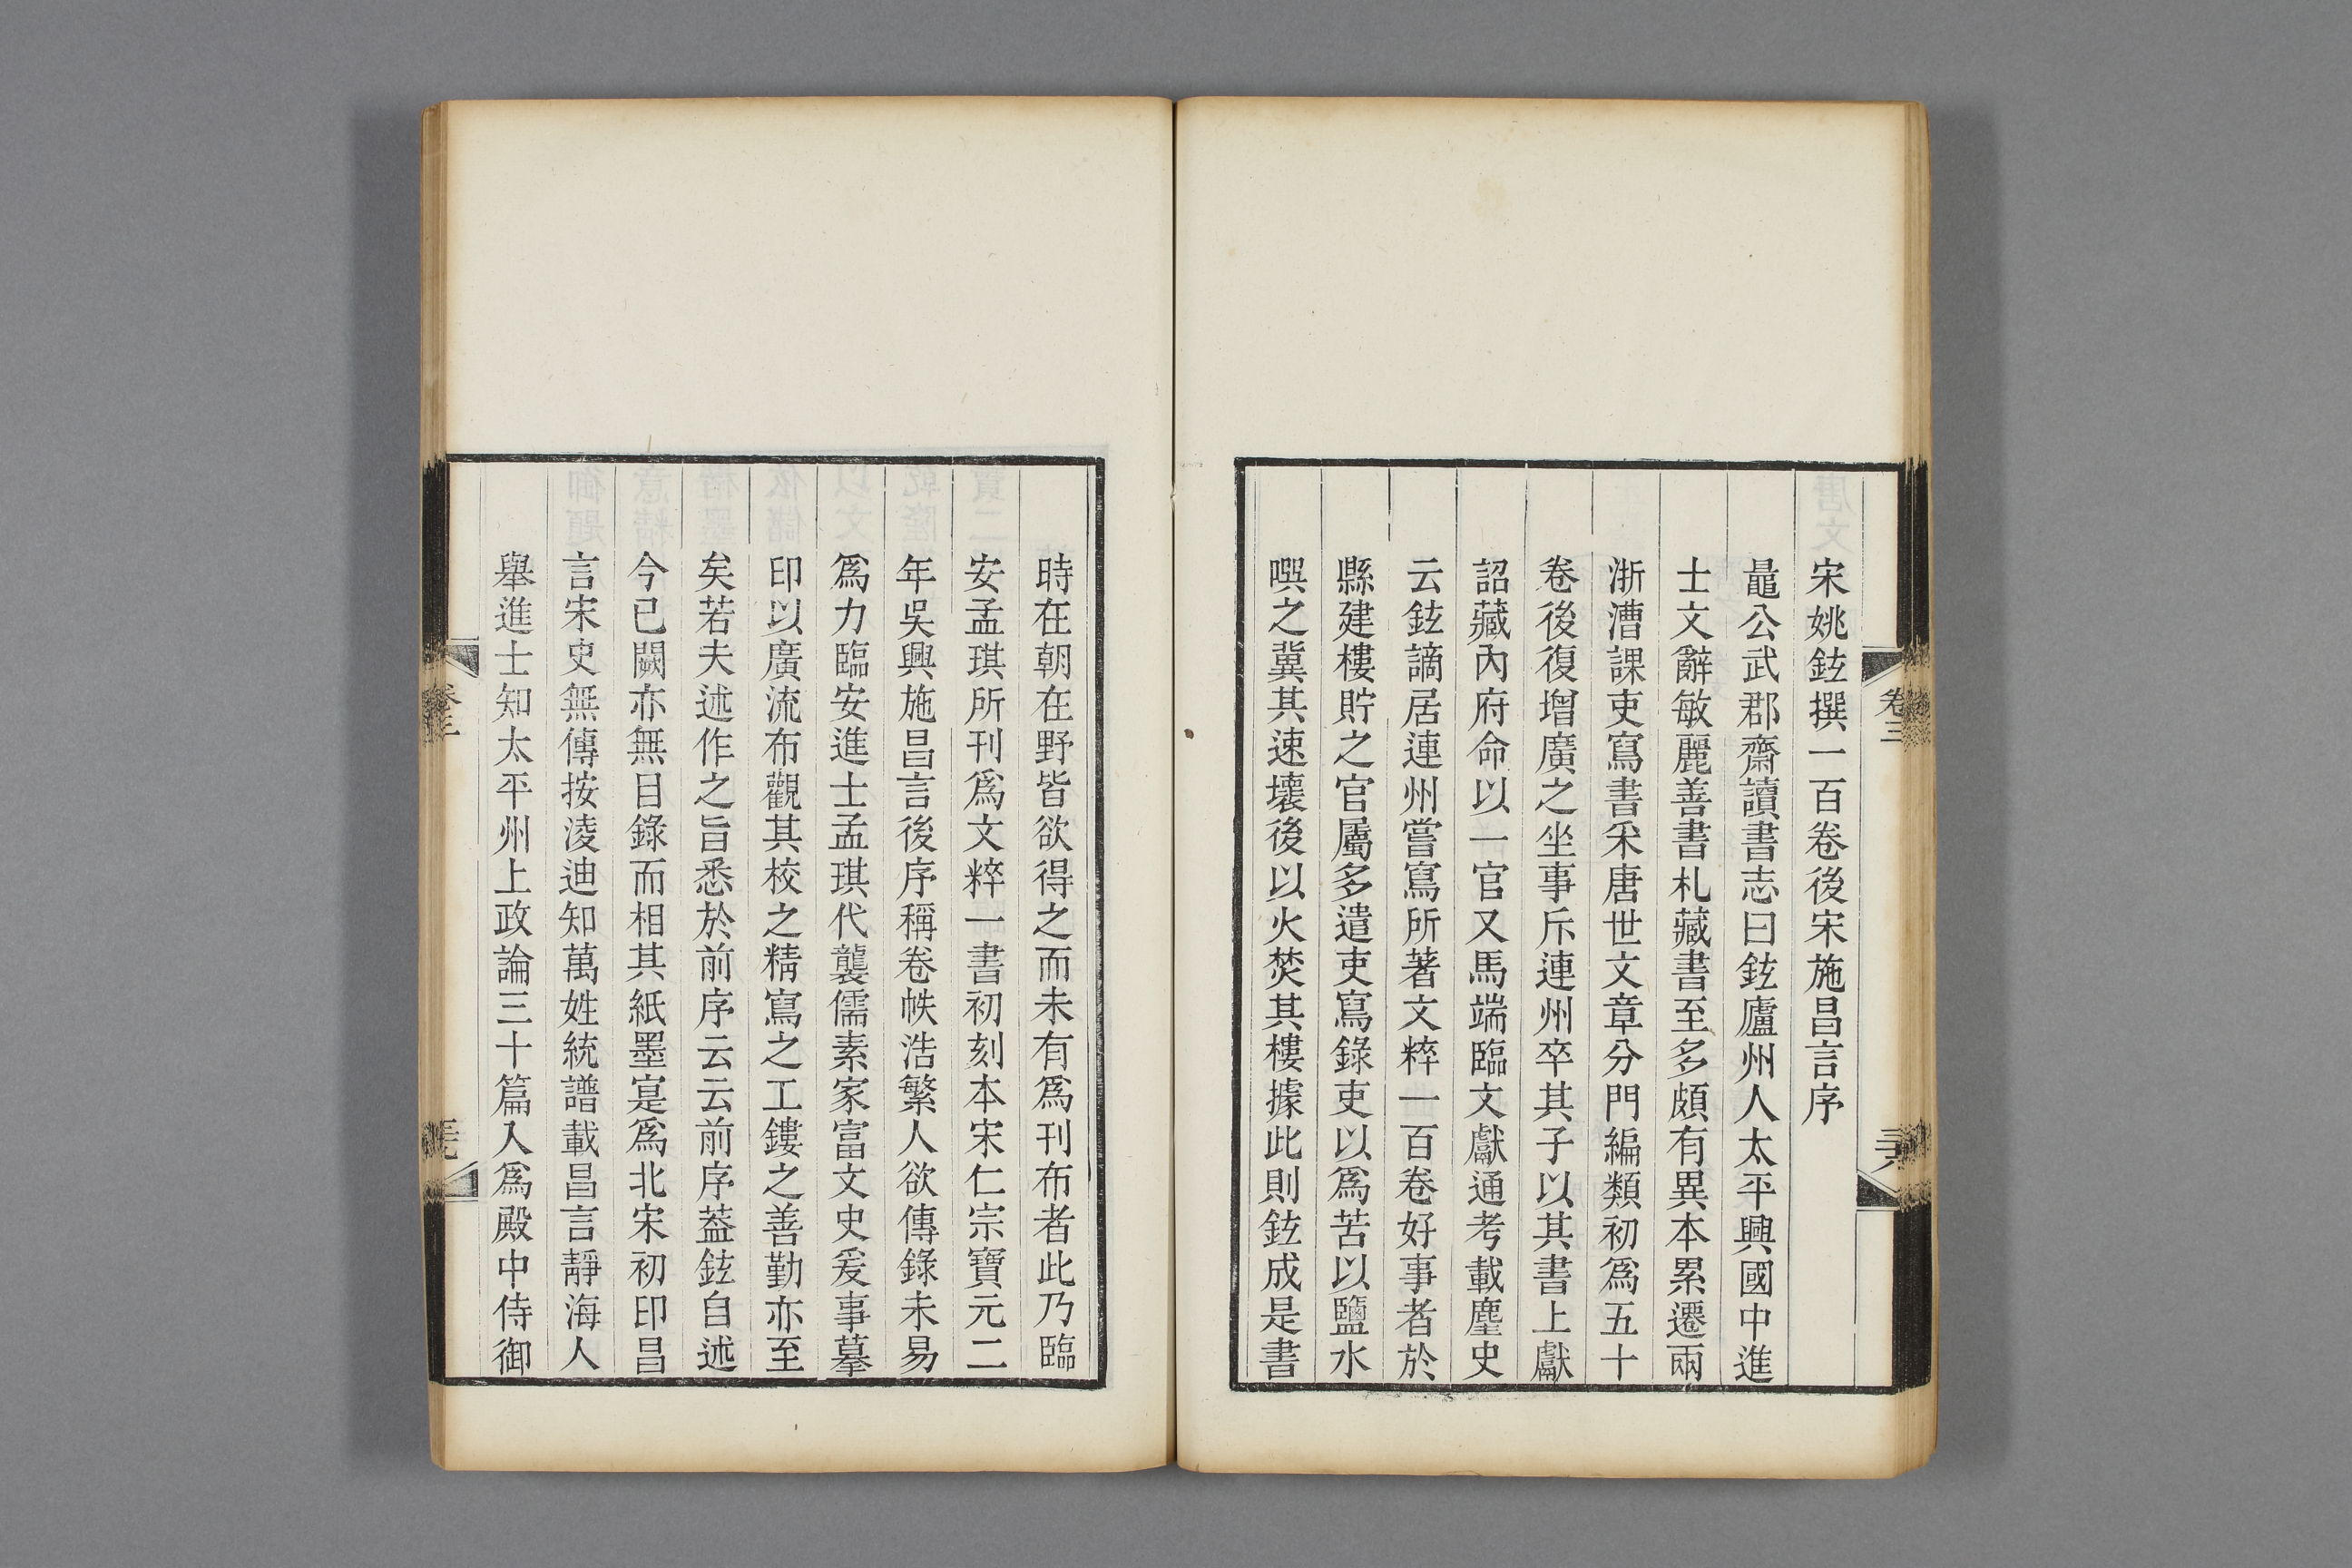 宋姚鉉撰一百卷後宋施昌言序
鼂公武郡齋讀書志曰鉉廬州人太平興國中進
士文辭敏麗善書札藏書至多頗有異本累遷兩
浙漕課吏寫書采唐世文章分門編類初爲五十
卷後復增廣之坐事斥連州卒其子以其書上獻
詔藏內府命以一官又馬端臨文獻通考載麈史
云鉉謫居連州嘗寫所著文粹一百卷好事者於
縣建樓貯之官屬多遣吏寫錄吏以爲苦以鹽水
噀之冀其速壞後以火焚其樓據此則鉉成是書
卷三
時在朝在野皆欲得之而未有爲刊布者此乃臨
安孟琪所刊爲文粹一書初刻本宋仁宗寶元二
年吳興施昌言後序稱卷帙浩繁人欲傳錄未易
爲力臨安進士孟琪代襲儒素家富文史爰事摹
印以廣流布觀其校之精寫之工鏤之善勤亦至
矣若夫述作之旨悉於前序云云前序葢鉉自述
今已闕亦無目錄而相其紙墨寔爲北宋初印昌
言宋史無傳按淩迪知萬姓統譜載昌言靜海人
舉進士知太平州上政論三十篇入爲殿中侍御
卷三